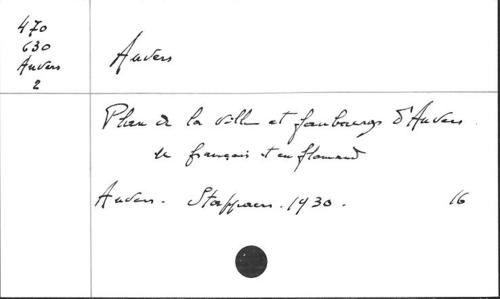 470
630
Anvers
2
Anvers
Plan de la ville et faubourgs d'Anvers.
en français et en flamand
Anvers. 1930. 16